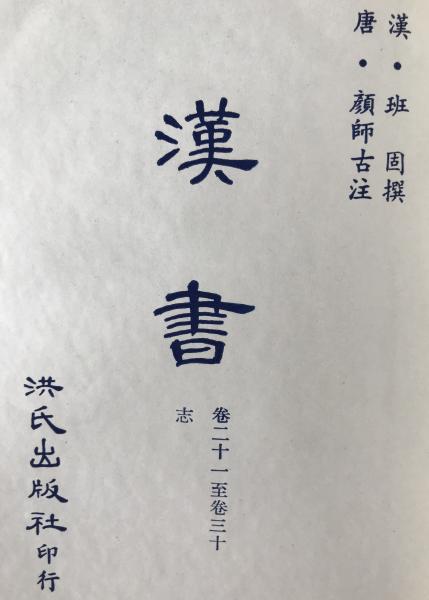 漢・班固撰
唐・顏師古注
漢書
卷二十一至卷三十
志
洪氏出版社印行